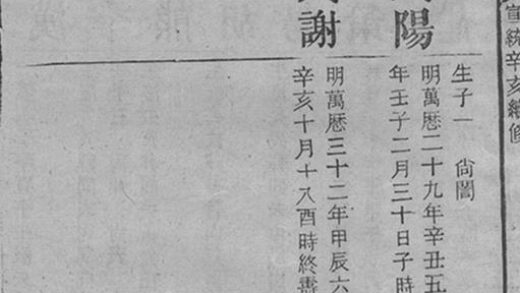 宣統辛亥續修
陽
生子一 尙
明萬曆二十九年辛丑五
年壬子二月三十日子時
謝
明萬曆三十二年甲辰六
辛亥十月十八酉時終壽